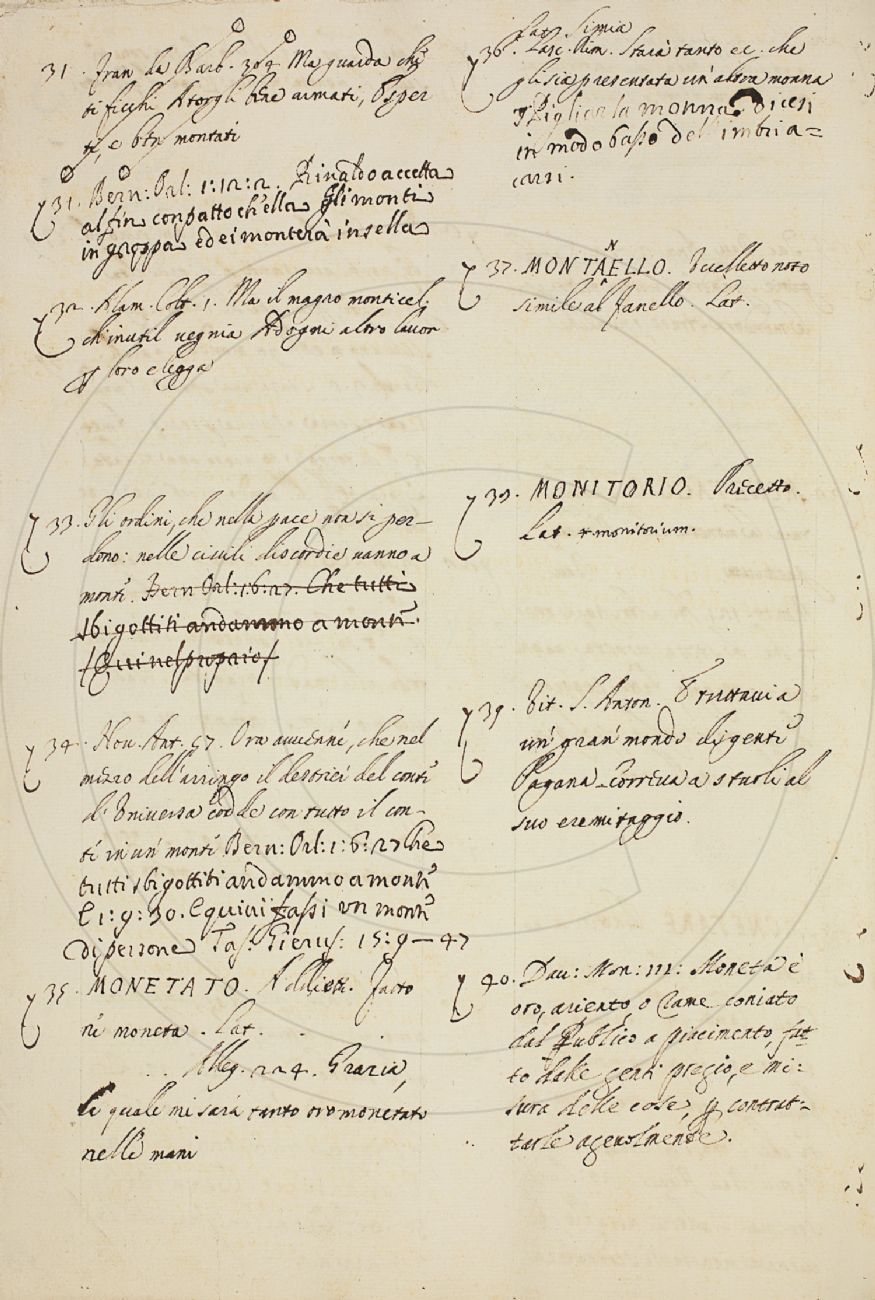 31. Fran da Barb. 364 Ma guarda che
ti ficchi A torgli bene armati, Esper
ti, e ben montati
31. Bern: Orl: 1:12:2. Rinaldo accetta
al fin con patto ch'ella Gli monti
in groppa ed ei monterà in sella
32. Alam. Colt. 1. Ma il magro monticel,
ch'inutil vegnia Ad ogni altro lavor
per loro elegga
33. Gli ordini, che nella pace non si per-
dono: nelle civili discordie vanno a
monte. Bern Orl: 1:6:27. Che tutti
sbigottiti andammo a monte.
/Qui nel proprio/
34. Nov. Ant. 57. Ora avvenne, che nel
mezzo dell'arringo il destrier del conte
d'Universa cadde con tutto il con-
te in un monte Bern: Orl: 1:6:27 Che
tutti sbigottiti andammo a monte
E 1:9:30. E quivi fassi un monte
di persone Tass. Gierus: 15:9-47
35. MONETATO. Addiett. Fatto
ne moneta. Lat.
Alleg. 224. Grazia,
la quale mi sarà tanto oro monetato
nelle mani
Lat. Simia
36. Lasc. Rim. Starà tanto ec. che
gli sia presentata un'altra monna
Pigliar la monna dicesi
in modo basso dell'imbria=
carsi.
37. MONTANELLO. Uccelletto noto
simile al Fanello. Lat.
38. MONITORIO. Precetto.
Lat. + monitorium.
39. Vit. S. Anton. Tuttavia
un gran mondo di gente
Pagana correva a stuoli al
suo eremitaggio.
40. Dav: Mon: 111: Moneta è
oro, ariento, o rame coniato
dal Publico a piacimento, fat
to dalle genti pregio, e mi:
sura delle cose, per contrat-
tarle agevolmente.